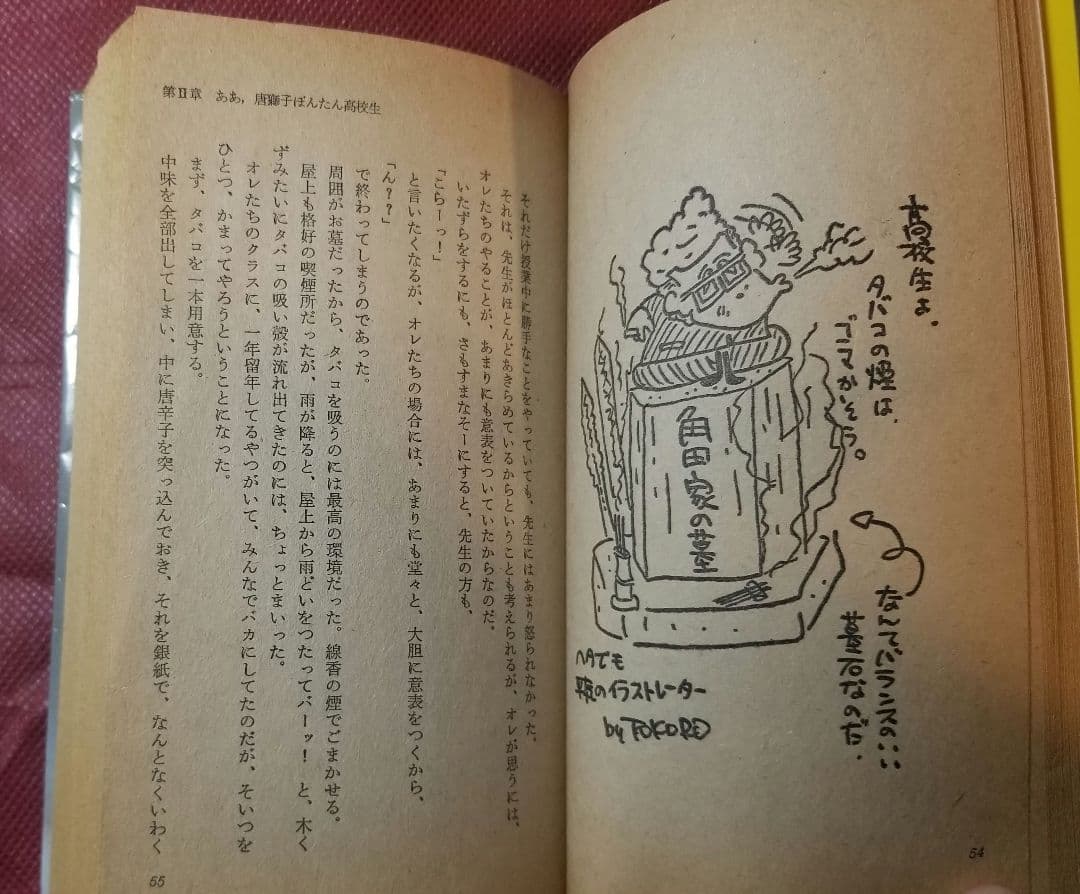 高校生よ、
タバコの煙は、
ゴマかそう。
角田家の墓
なんてバランスのいい
墓石なのだ。
ヘタでも
のイラストレーター
by TOKORO
54
第II章 ああ，唐獅子ぼんたん高校生
それだけ授業中に勝手なことをやっていても、先生にはあまり怒られなかった。
それは、先生がほとんどあきらめているからということも考えられるが、オレが思うには、
オレたちのやることが、あまりにも意表をついていたからなのだ。
いたずらをするにも、さもすまなそーにすると、先生の方も、
「こらーっ！」
と言いたくなるが、オレたちの場合には、あまりにも堂々と、大胆に意表をつくから、
「ん？？」
で終わってしまうのであった。
周囲がお墓だったから、タバコを吸うのには最高の環境だった。線香の煙でごまかせる。
屋上も格好の喫煙所だったが、雨が降ると、屋上から雨どいをつたってバーッ！ と、木く
ずみたいにタバコの吸い殻が流れ出てきたのには、ちょっとまいった。
オレたちのクラスに、一年留年してるやつがいて、みんなでバカにしてたのだが、そいつを
ひとつ、かまってやろうということになった。
まず、タバコを一本用意する。
中味を全部出してしまい、中に唐辛子を突っ込んでおき、それを銀紙で、なんとなくいわく
55